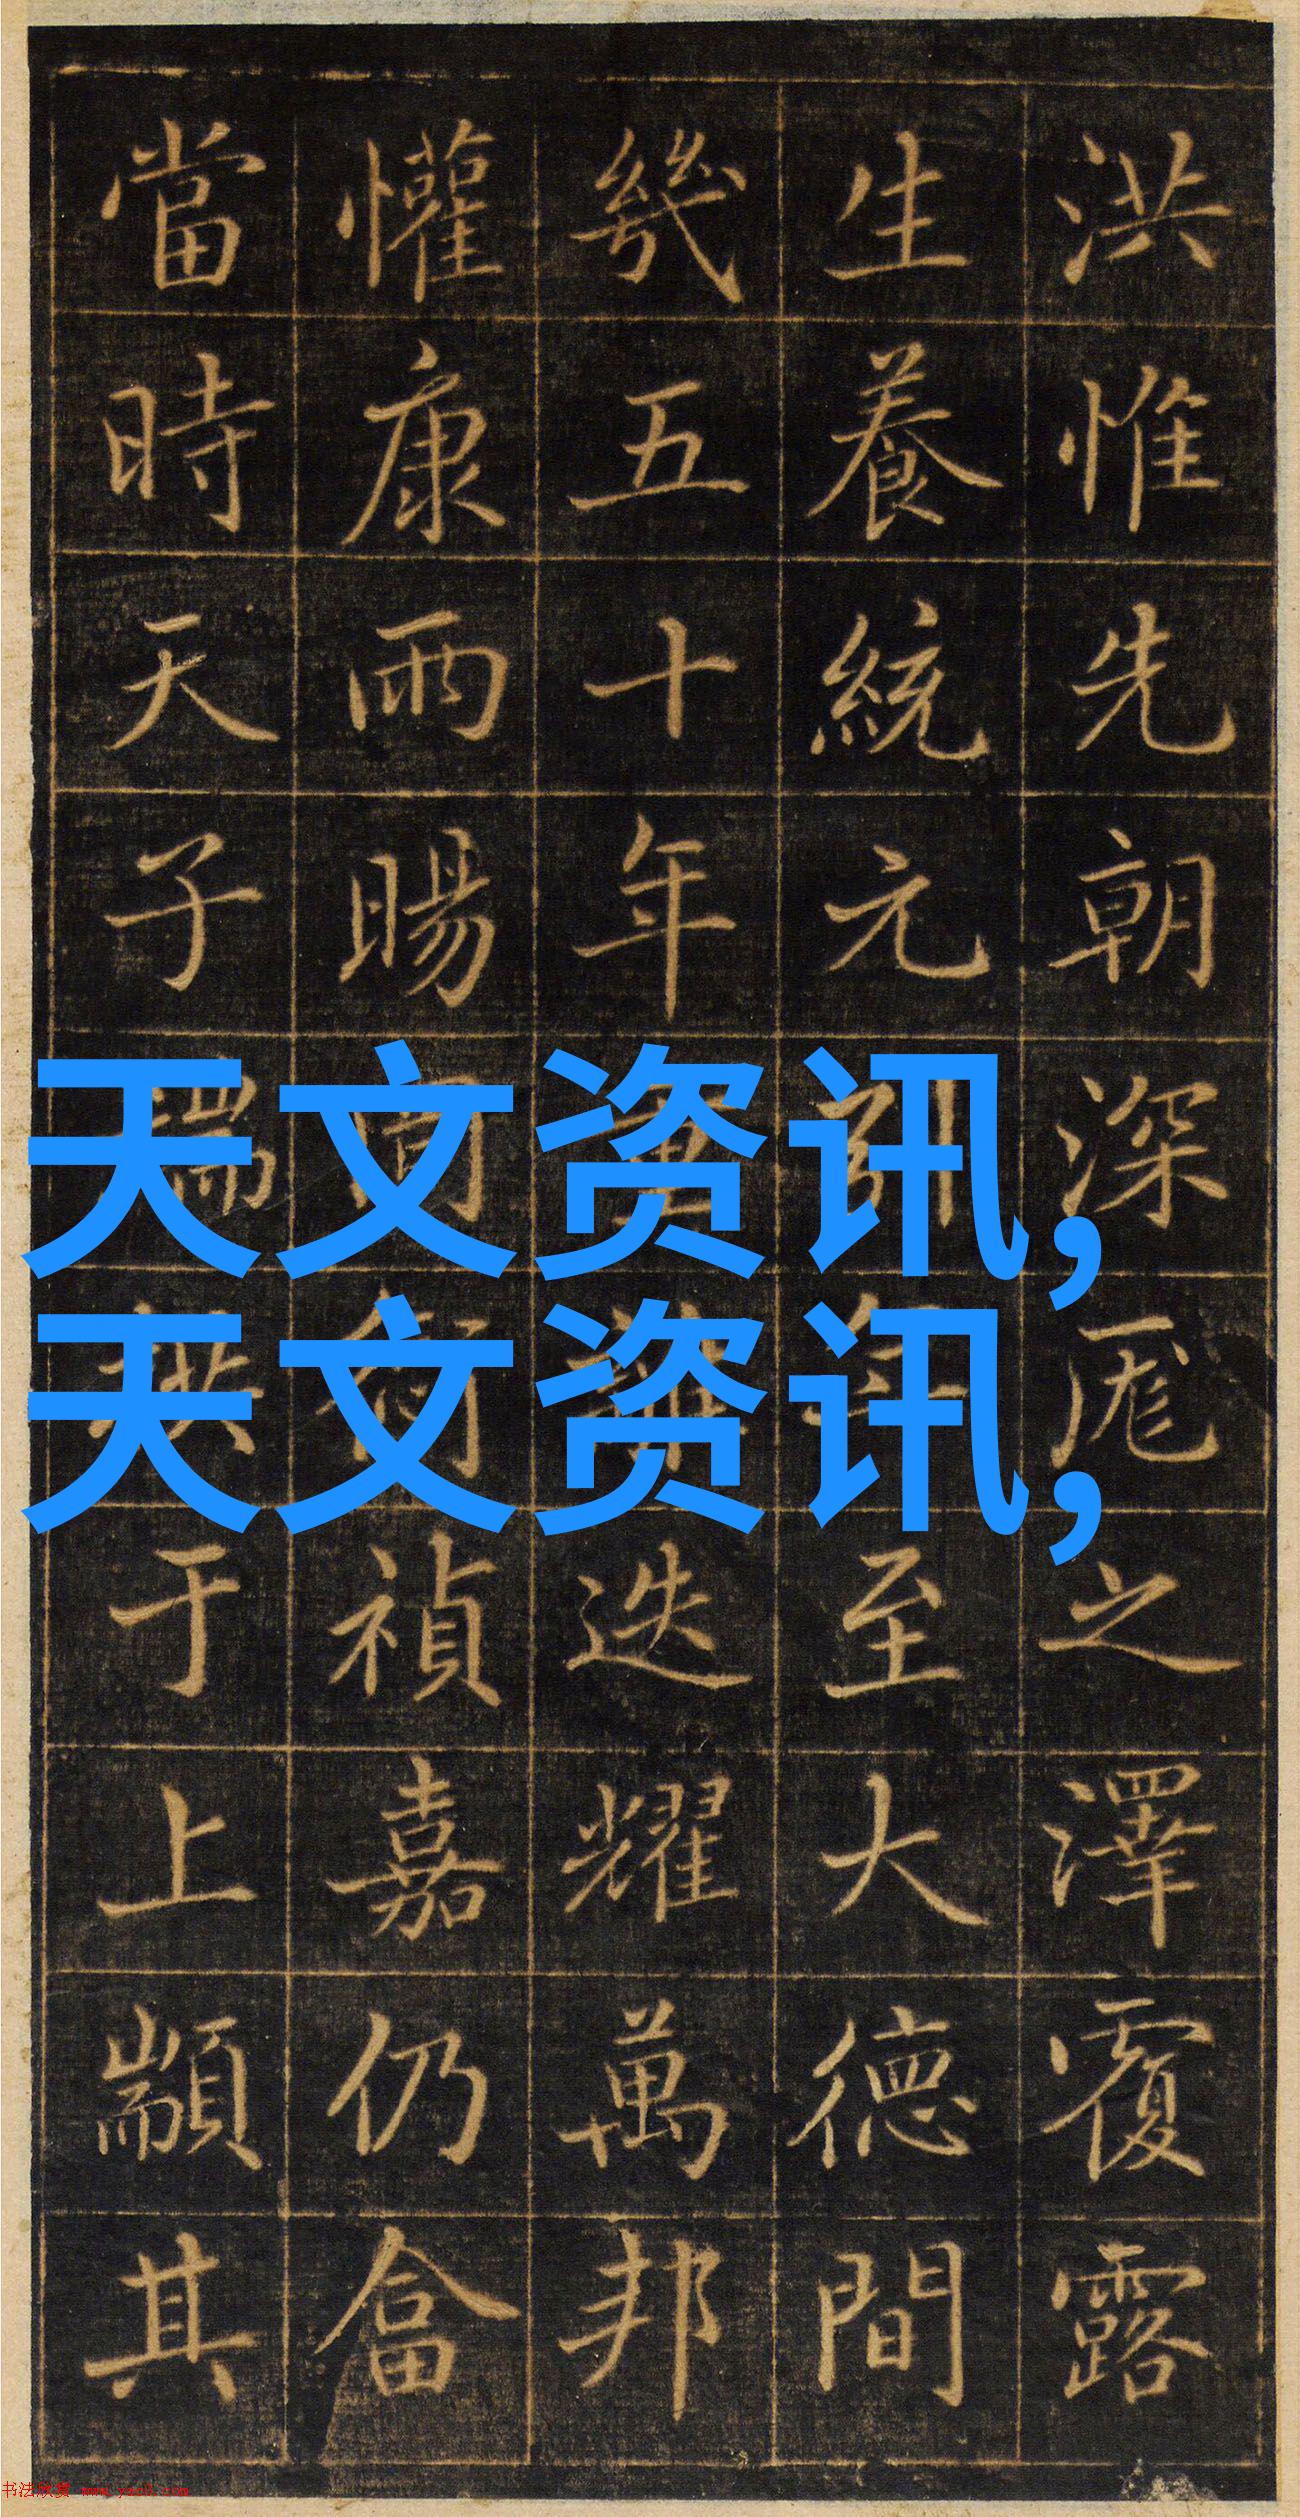 洪惟先朝深厖之澤覆露
生養統元
至大德間
幾五十年
迭耀萬邦
懽康雨暘
禎嘉仍畣
當時天子
于上顓其
天文资讯,
天文资讯,
书法欣赏 www.yac8.com